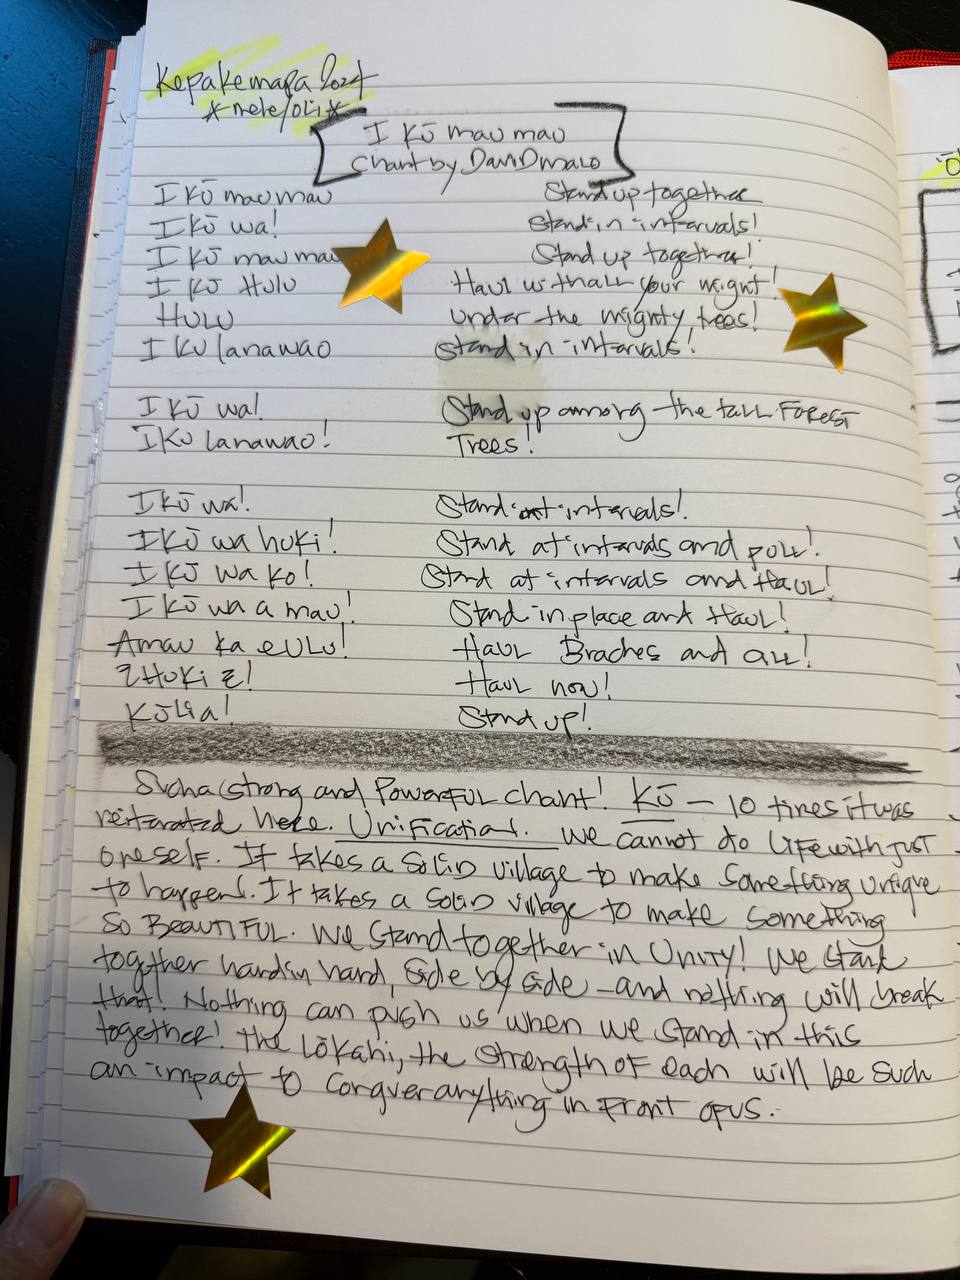 Kepakemapa 2024
*mele/oli*
I Kū mau mau
Chant by David Malo
I Kū mau mau Stand up together
I Kū wa! Stand in intervals!
I Kū mau mau Stand up together!
I Kū Hulu Haul with all your might!
Hulu Under the mighty trees!
I Kū lanawao Stand in intervals!
I Kū wa! Stand up among the tall Forest
I Kū lanawao! Trees!
I Kū wa! Stand at intervals!
I Kū wa huki! Stand at intervals and pull!
I Kū wa ko! Stand at intervals and Haul!
I Kū wa a mau! Stand in place and Haul!
A mau ka eulu! Haul Braches and all!
E Huki E! Haul now!
Kūlia! Stand up!
Such a strong and Powerful chant! Kū – 10 times it was
reiterated here. Unification. We cannot do life with just
oneself. It takes a solid village to make something unique
to happen. It takes a solid village to make something
so BEAUTIFUL. We stand together in Unity! We stand
together hand in hand, side by side – and nothing will break
that! Nothing can push us when we stand in this
together! The Lōkahi, the strength of each will be such
an impact to conquer anything in front of us.